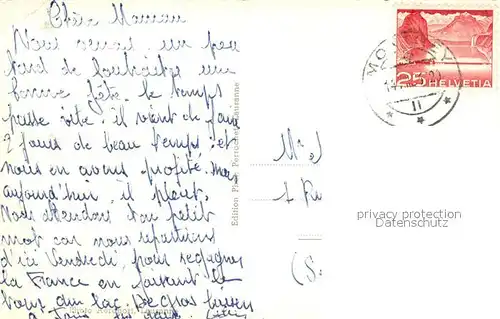 Chère Maman
Nous venons un peu
tard te souhaiter une
bonne fête. le temps
passe vite. il vient de faire
2 jours de beau temps. et
nous en avons profité. mais
aujourd'hui, il pleut.
Nous attendons ton petit
mot car nous repartirons
d'ici Vendredi, pour regagner
la France en faisant le
tour du lac. De gros baisers
à tous les deux.
Edition Photo Perrochet Lausanne
25
HELVETIA
11
privacy protection
Datenschutz